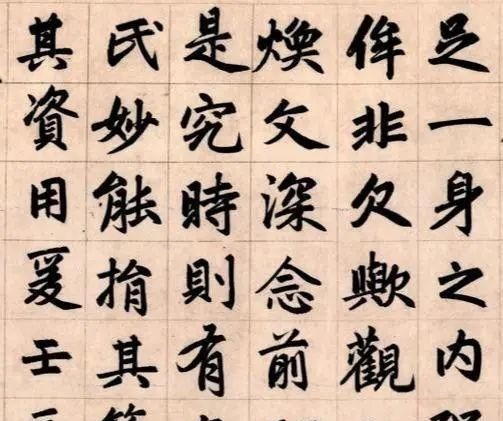 足一身之内
侔非欠歟觀
煥文深念前
是究時則有
氏妙能指其
其資用爰壬